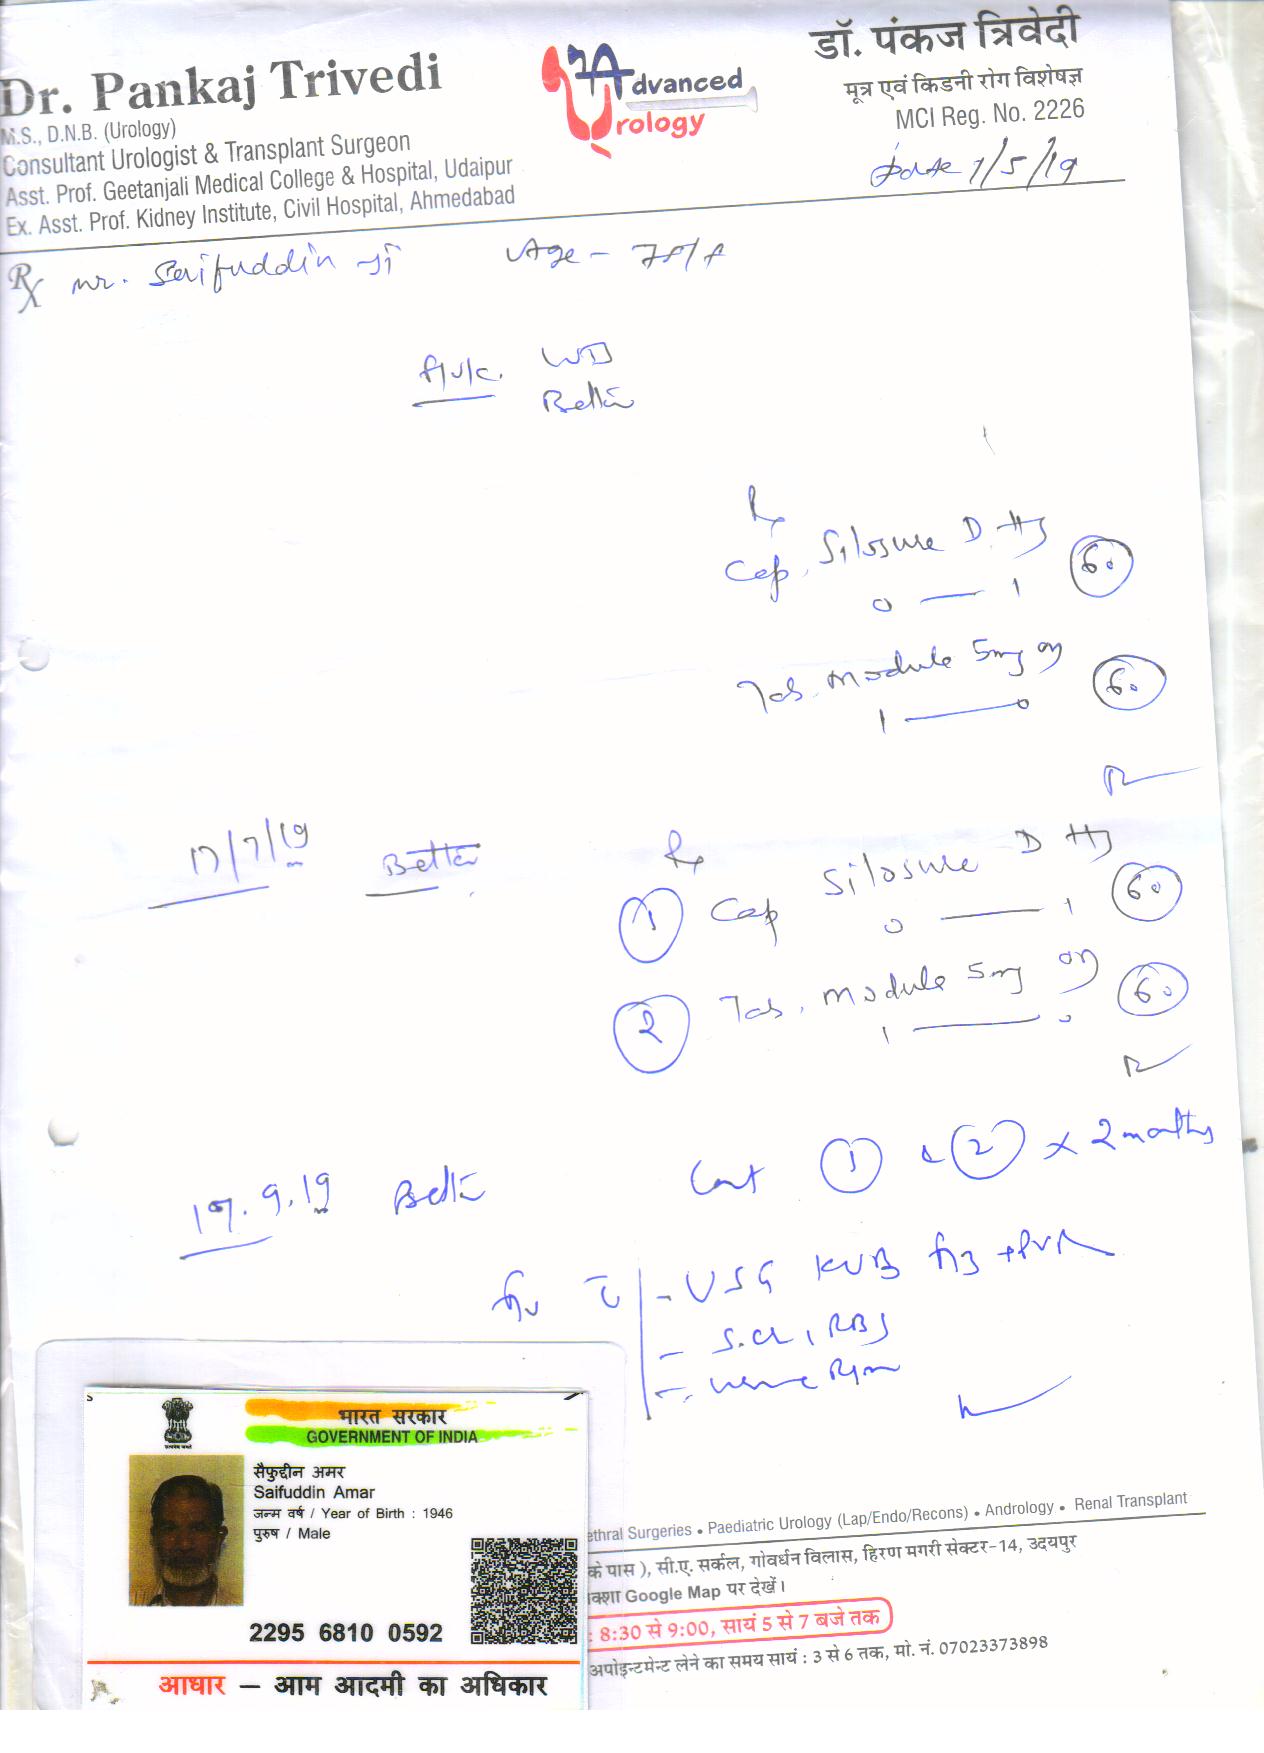 Dr. Pankaj Trivedi
M.S., D.N.B. (Urology)
Consultant Urologist & Transplant Surgeon
Asst. Prof. Geetanjali Medical College & Hospital, Udaipur
Ex. Asst. Prof. Kidney Institute, Civil Hospital, Ahmedabad
Advanced
Urology
डॉ. पंकज त्रिवेदी
मूत्र एवं किडनी रोग विशेषज्ञ
MCI Reg. No. 2226
Date 1/5/19
Rx Mr. Saifuddin Ji Age -
Better
Rx
Cap. Silosure D
0 — 1 60
Tab. Module 5mg 60
1 — 0
17/7/19 Better Rx
1 Cap Silosure D 60
0 — 1
2 Tab. Module 5mg 60
1 — 0
17.9.19 Better Cont 1 & 2 x 2 months
- USG KUB + PVR
- S.Cr, RBS
- Urine
भारत सरकार
GOVERNMENT OF INDIA
सैफुद्दीन अमर
Saifuddin Amar
जन्म वर्ष / Year of Birth : 1946
पुरुष / Male
2295 6810 0592
आधार – आम आदमी का अधिकार
ethral Surgeries • Paediatric Urology (Lap/Endo/Recons) • Andrology • Renal Transplant
के पास ), सी.ए. सर्कल, गोवर्धन विलास, हिरण मगरी सेक्टर-14, उदयपुर
क्शा Google Map पर देखें।
: 8:30 से 9:00, सायं 5 से 7 बजे तक
अपोइन्टमेन्ट लेने का समय सायं : 3 से 6 तक, मो. नं. 07023373898